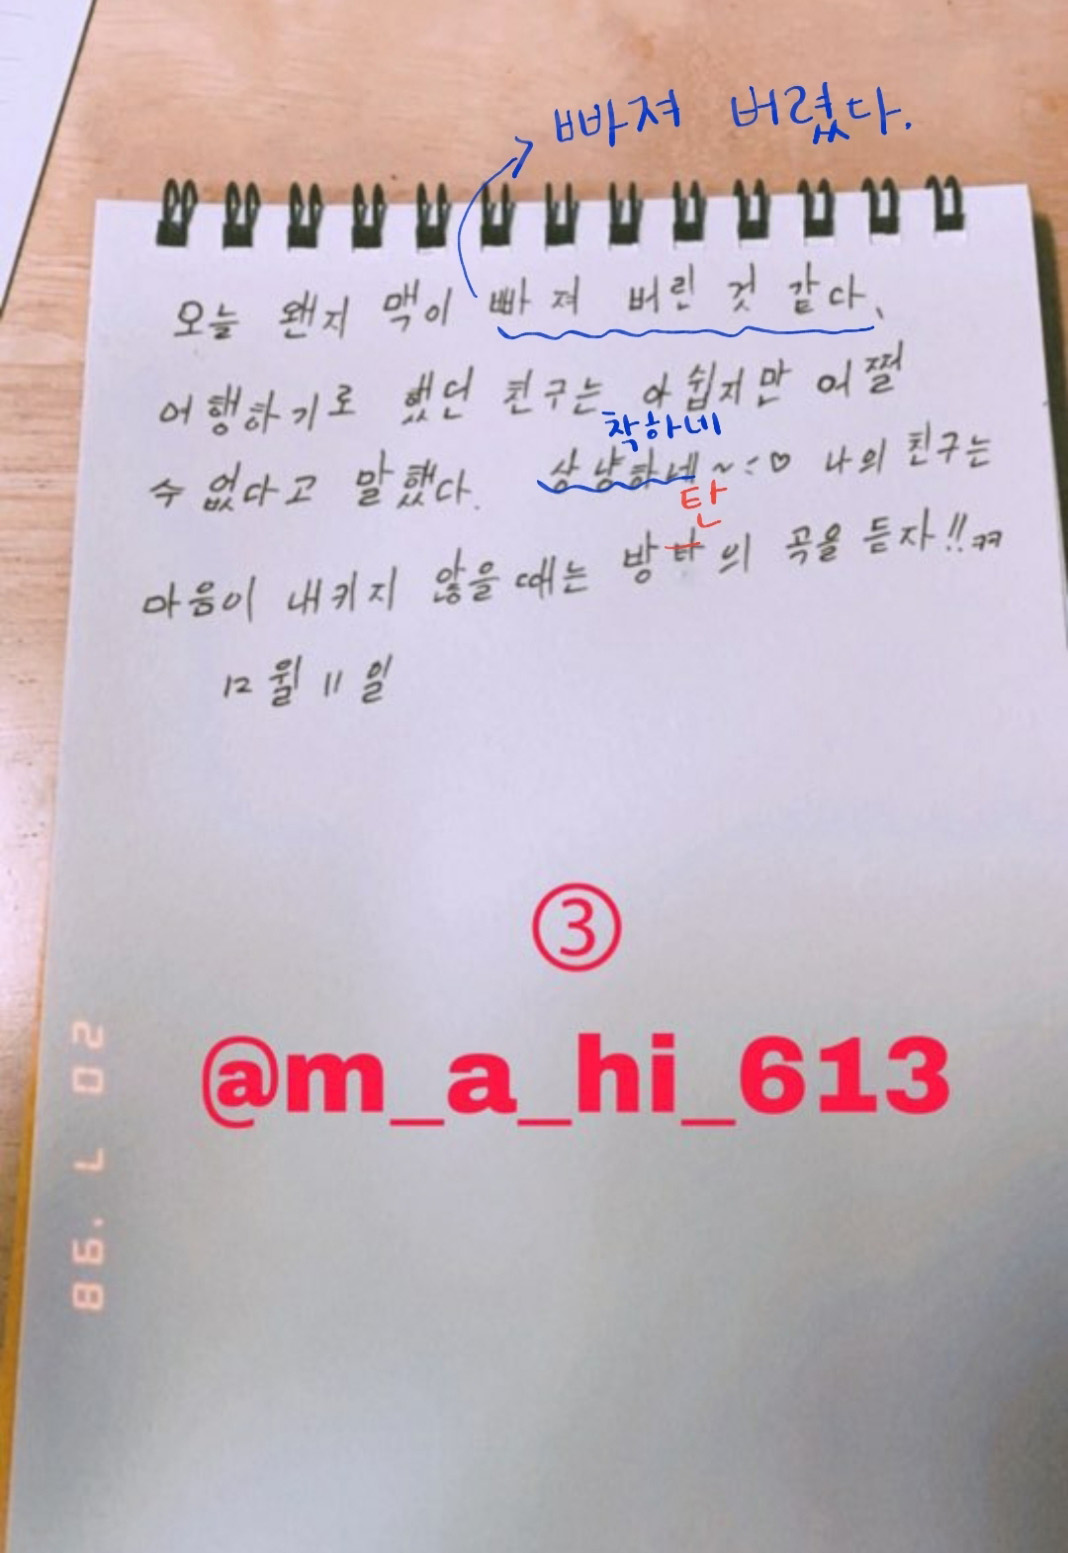 빠져 버렸다.
오늘 왠지 맥이 빠져 버린 것 같다.
여행하기로 했던 친구는 아쉽지만 어쩔
착하네
수 없다고 말했다. 상냥하네~ :♡ 나의 친구는
탄
마음이 내키지 않을 때는 방타의 곡을 듣자!! ㅋㅋ
12월 11일
③
@m_a_hi_613
20 7 '98